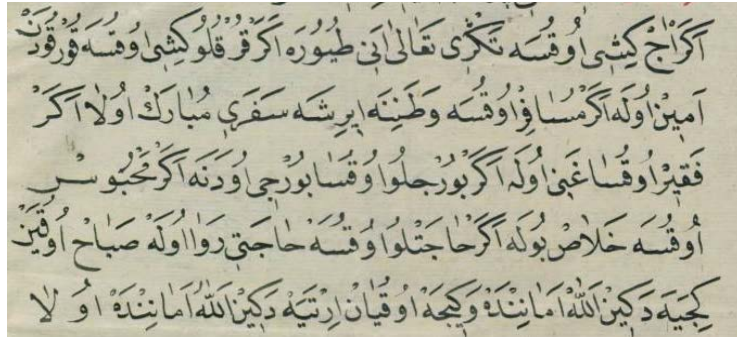 اَكَرْ اٰجْ كِيشِى اُوقُسَه تَكْرِى تَعَالٰى اَنِى طُيُورَه اَكَرْ قُرْقُلُو كِيشِى اُوقُسَه قُورْقُودَنْ
اَمِينْ اُولَه اَكَرْ مُسَافِرْ اُوقُسَه وَطَنِنَه اِيرِشَه سَفَرِى مُبَارَكْ اُولَا اَكَرْ
فَقِيرْ اُوقُسَا غَنِى اُولَه اَكَرْ بُورْجلُو اُوقُسَا بُورْجِى اُودَنَه اَكَرْ مَحْبُوسْ
اُوقُسَه خَلَاصْ بُولَه اَكَرْ حَاجَتْلُو اُوقُسَه حَاجَتِى رَوَا اُولَه صَبَاحْ اُوقُيَنْ
كِجَيَه دَكِينْ اَللّٰهْ اَمَانِنْدَه وَكِيجَه اُوقُيَانْ اِرْتَيَه دَكِينْ اَللّٰهْ اَمَانِنْدَه اُولَا